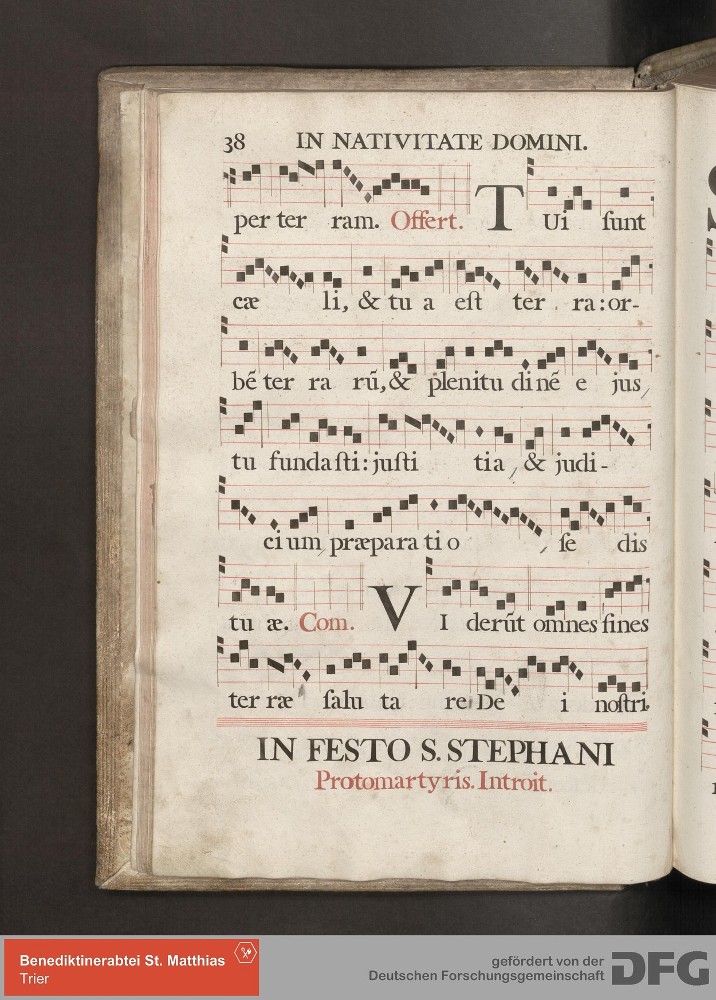 38 IN NATIVITATE DOMINI.
per ter ram. Offert. TUi sunt
cæ li, & tu a est ter ra: or-
bē ter ra rū, & plenitu dinē e jus,
tu fundasti: justi tia, & judi-
cium, præpara ti o , se dis
tu æ. Com. VI derūt omnes fines
ter ræ salu ta re De i nostri.
IN FESTO S. STEPHANI
Protomartyris. Introit.
Benediktinerabtei St. Matthias
Trier
gefördert von der
Deutschen Forschungsgemeinschaft DFG